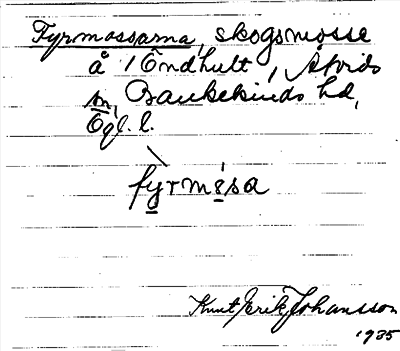 Fyrmossarna, skogsmosse
å Öndhult, Åtvids
sn, Bankekinds hd,
Ögl. l.
fyrmåsa
Knut Erik Johansson
1935